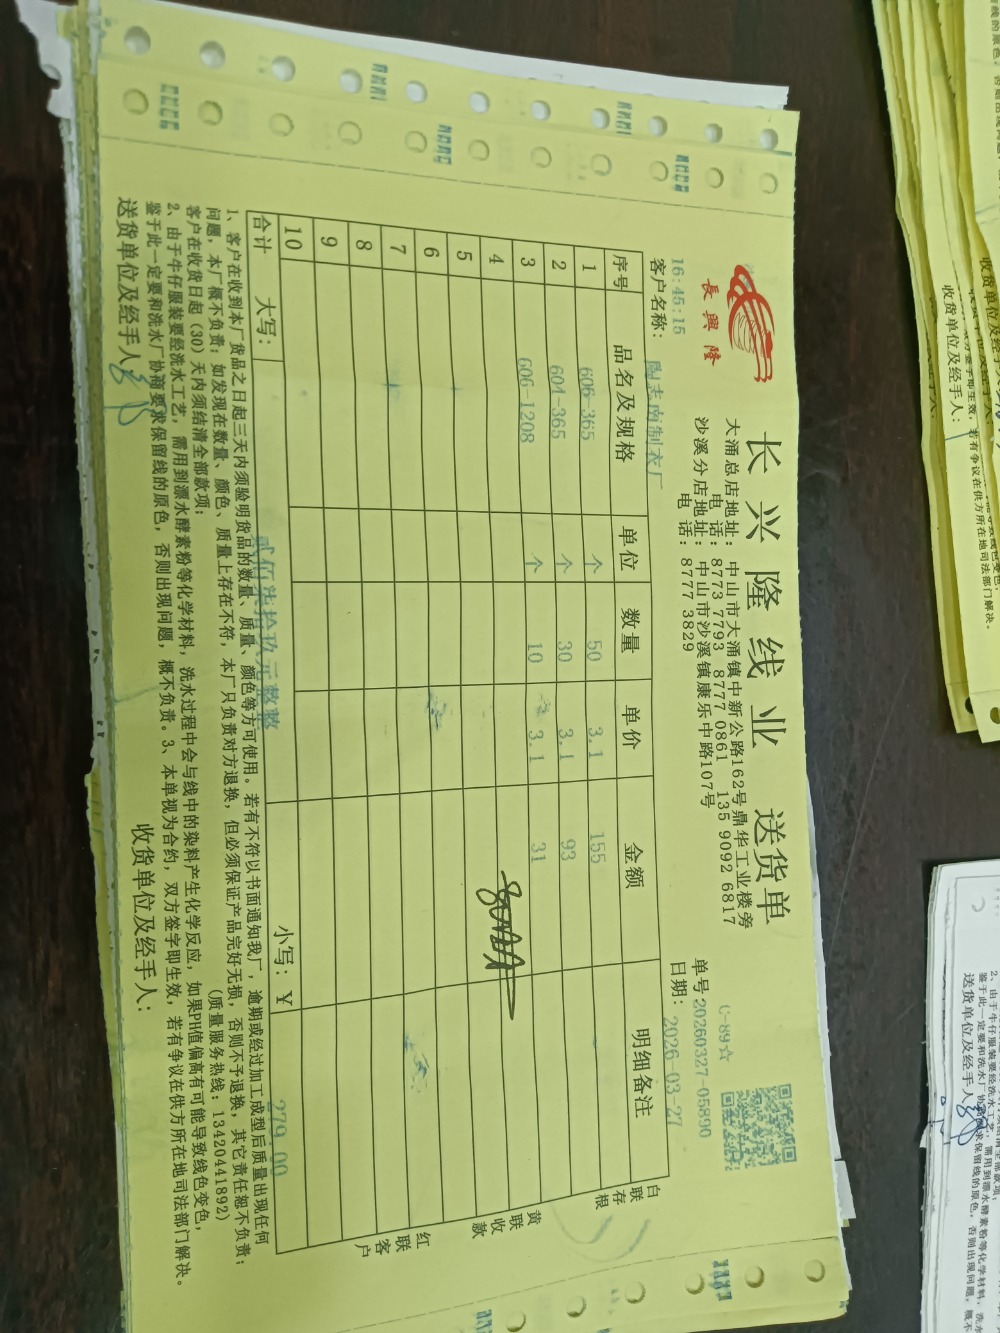 長興隆
长兴隆线业 送货单
大涌总店地址：中山市大涌镇中新公路162号鼎华工业楼旁
电话：8773 7793 8777 0861 135 9092 6817
沙溪分店地址：中山市沙溪镇康乐中路107号
电话：8777 3829
C-89☆
单号20260327-05890
16:45:15
客户名称：志南制衣厂
日期：2026-03-27
序号 品名及规格 单位 数量 单价 金额 明细备注
1 606-365 个 50 3.1 155
2 604-365 个 30 3.1 93
3 606-1208 个 10 3.1 31
4
5
6
7
8
9
10
合计 大写：贰佰柒拾玖元整 小写：¥ 279.00
白联存根
黄联收款
红联客户
1、客户在收到本厂货品之日起三天内须验明货品的数量、质量、颜色等方可使用。若有不符以书面通知我厂，逾期或经过加工成型后质量出现任何
问题，本厂概不负责；如发现在数量、颜色、质量上存在不符，本厂只负责对方退换，但必须保证产品完好无损，否则不予退换，其它责任恕不负责；
客户在收货日起（30）天内须结清全部款项；
（质量服务热线：13420441892）
2、由于牛仔服装要经洗水工艺，需用到漂水酵素粉等化学材料，洗水过程中会与线中的染料产生化学反应，如果PH值偏高有可能导致线色变色，
鉴于此一定要和洗水厂协商要求保留线的原色，否则出现问题，概不负责。3、本单视为合约，双方签字即生效，若有争议在供方所在地司法部门解决。
送货单位及经手人：
收货单位及经手人：
收货单位及经手人：
送货单位及经手人